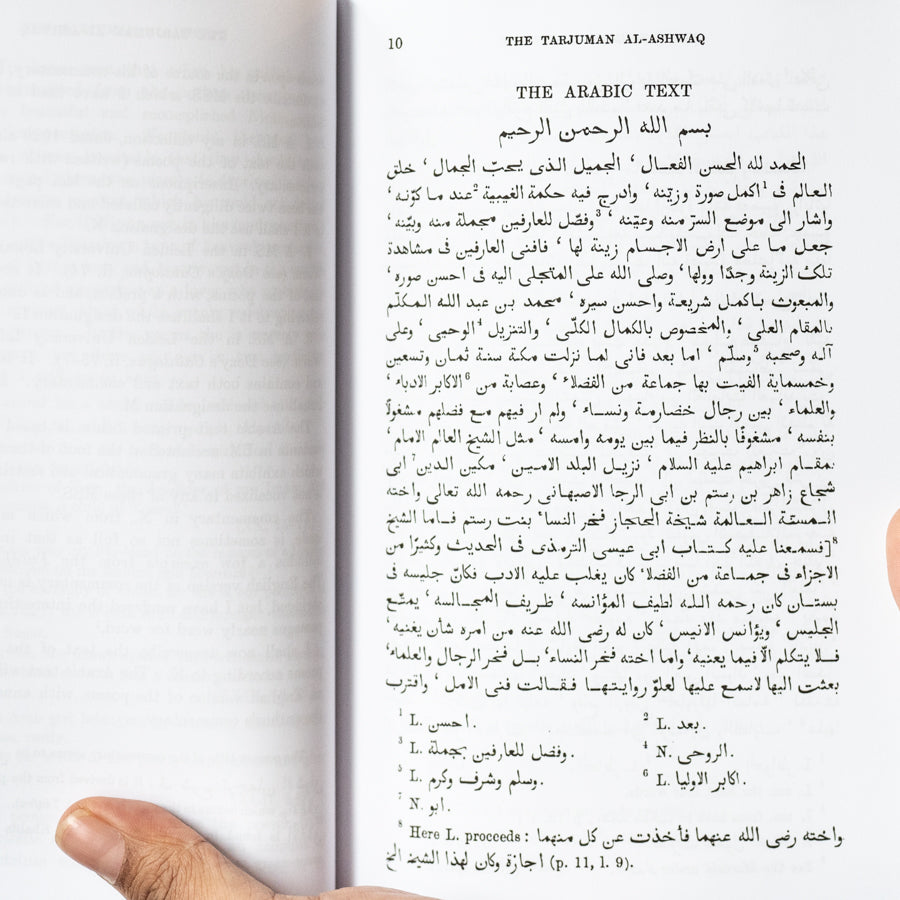 10 THE TARJUMAN AL-ASHWAQ
THE ARABIC TEXT
بسم الله الرحمن الرحيم
الحمد لله الحسن الفعـال ‘ الجميل الذى يحبّ الجمال ‘ خلق
العـالم فى ¹اكمل صورة وزيّنه ‘ وادرج فيه حكمة الغيبية ²عند مـا كوّنـه ‘
واشار الى موضع السرّ منه وعيّنه ‘ ³وفصّل للعارفين مجملة منه وبيّنه ‘
جعل مـا على ارض الاجسـام زينة لها ‘ فافنى العارفين فى مشاهدة
تلك الزينة وجدًا وولها ‘ وصلى الله على المتجلى اليه فى احسن صوره ‘
والمبعوث بـاكمل شريعة واحسن سيره ‘ محمد بن عبد اللـه المـكلّم
بالمقام العلى ‘ والمخصوص بالكمال الكلّـى ‘ والتنزيل ⁴الوحيى ‘ وعلى
آلـه وصحبه ⁵وسلّم ‘ اما بعد فانى لمـا نزلت مكة سنة ثمان وتسعين
وخمسماية الفيت بها جماعة من الفضلاء ‘ وعصابة من ⁶الاكابر الادباء ‘
والعلماء ‘ بين رجال خضارمة ونسـاء ‘ ولم ار فيهم مـع فضلهم مشغولاً
بنفسه ‘ مشغوفًا بالنظر فيما بين يومه وامسه ‘ مثل الشيخ العالم الامام ‘
بمقـام ابراهيم عليه السلام ‘ نزيـل البلد الامـين ‘ مكين الـدين ⁷ابى
شجاع زاهر بن رستم بن ابى الرجا الاصبهـانى رحمه الله تعالى واخته
المـسنّة الـعـالمة شيخة الحجاز فخر النساء ‘ بنت رستم فـاما الشيخ
⁸[فسمعنا عليه كـتـاب ابى عيسى الترمذى فى الحديث وكثيرًا من
الاجزاء فى جمـاعة من الفضلاء كان يغلب عليه الادب فكانّ جليسه فى
بستـان كان رحمه اللـه لطيف المؤانسه ‘ ظريف المجـالسه ‘ يمتّـع
الجليس ‘ ويؤانس الانيس ‘ كان له رضى الله عنه من امره شأن يغنيه ‘
فـلا يتكلم الّا فيما يعنيه ‘ واما اخته فخر النساء ‘ بـل فخر الرجال والعلماء ‘
بعثت اليها لاسمع عليها لعلوّ روايتـهـا فـقـالت فنى الامل ‘ واقترب
¹ L. احسن. ² L. بعد.
³ L. وفضل للعارفين بجملة. ⁴ N. الروحى.
⁵ L. وسلم وشرف وكرم. ⁶ L. اكابر الاوليا.
⁷ N. ابو.
⁸ Here L. procceds : واخته رضى الله عنهما فأخذت عن كل منهما
اجازة وكان لهذا الشيخ الخ (p. 11, l. 9).